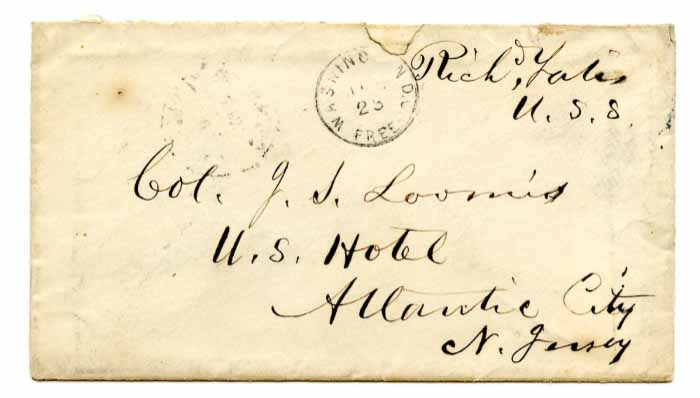 Rich'd, Yates
U. S. S.
WASHINGTON D.C.
23
FREE
Col. J. S. Loomis
U. S. Hotel
Atlantic City
N. Jersey